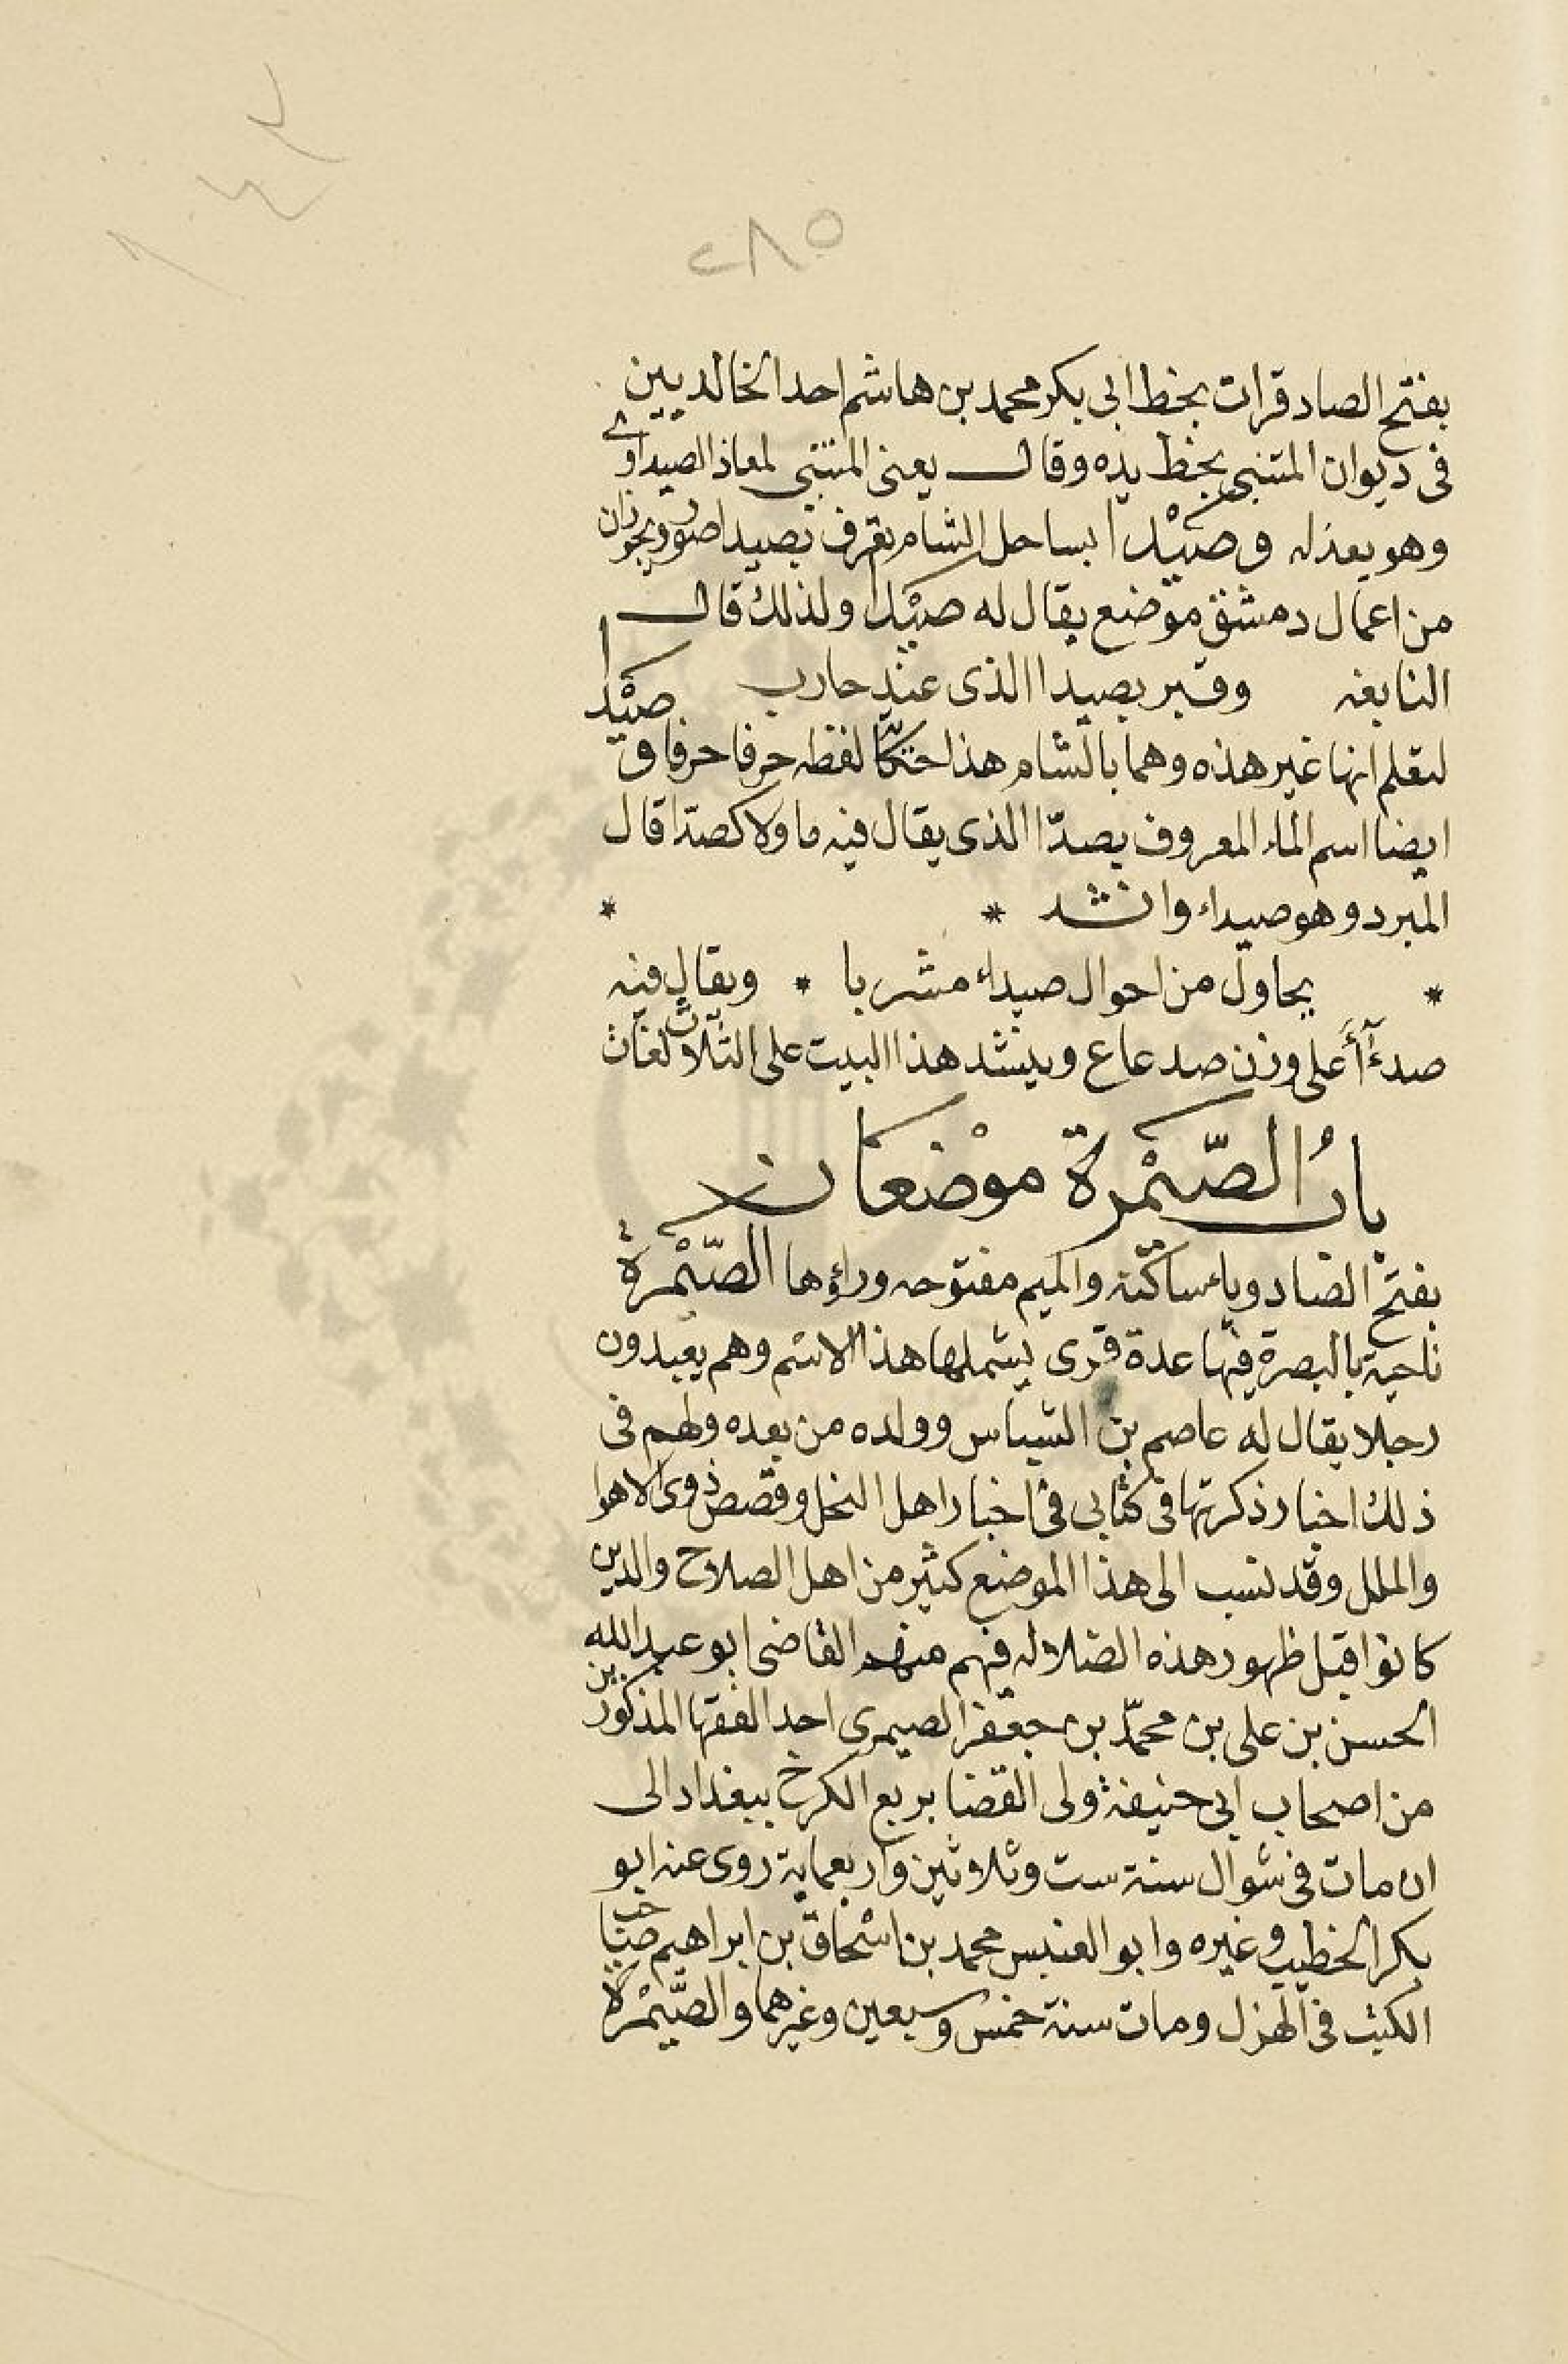 ٢٨٥
بفتح الصاد قرات بخط ابى بكر محمد بن هاشم احد الخالديين
فى ديوان المتنبى بخط يده وقال يعنى المتنبى لمعاذ الصيداوى
وهو يعذله وصَيْدا بساحل الشام تعرف بصيدا صور وبحوران
من اعمال دمشق موضع يقال له صَيْدا ولذلك قال
النابغه وقبر بصيدا الذى عند حارب
لتعلم انها غير هذه وهما بالشام هذا حكا لفظه حرفا حرفا و صَيْدا
ايضا اسم الماء المعروف بصدّا الذى يقال فيه ما ولا كصدّا قال
المبرد وهو صيداء وانشد * *
* يحاول من احوال صيداء مشربا * ويقال فيه
صدءآأ على وزن صدعاع وينشد هذا البيت على الثلاث لغات
بابُ الصَّيْمَرة موْضعَان
بفتح الصاد وياء ساكنة والميم مفتوحه وراؤها الصَّيْمَرة
ناحية بالبصرة فيها عدة قرى يشملها هذا الاسم وهم يعبدون
رجلا يقال له عاصم بن الشباس وولده من بعده ولهم فى
ذلك اخبار ذكرتها فى كتابى فى اخبار اهل النحل وقصص ذوى الاهوا
والملل وقد نسب الى هذا الموضع كثير من اهل الصلاح والدين
كانوا قبل ظهور هذه الضلاله فيهم منهم القاضى ابو عبد الله
الحسن بن على بن محمّد بن جعفر الصيمرى احد الفقها المذكورين
من اصحاب ابى حنيفة ولى القضا بربع الكرخ ببغداد الى
ان مات فى شوال سنة ست وثلاثين واربعماية روى عنه ابو
بكر الخطيب وغيره وابو العنبس محمد بن اسْحاق بن ابراهيم صاحب
الكتب فى الهزل ومات سنة خمس وسبعين وغيرهما والصَّيْمَرة